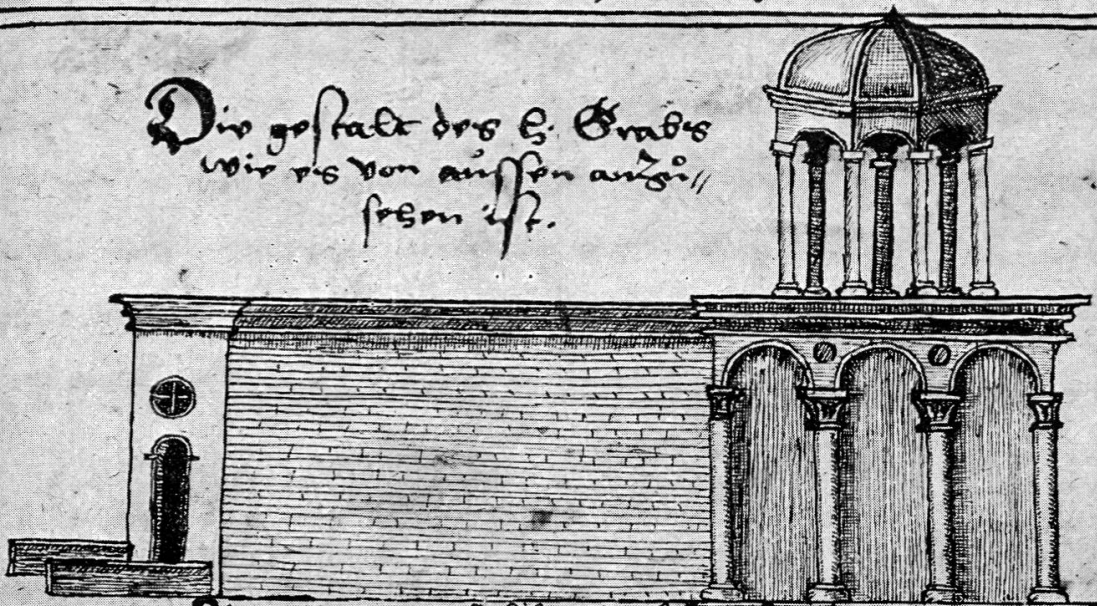 Die gestalt des h. Grabs
wie es von aůssen anzů„
sehen ist.